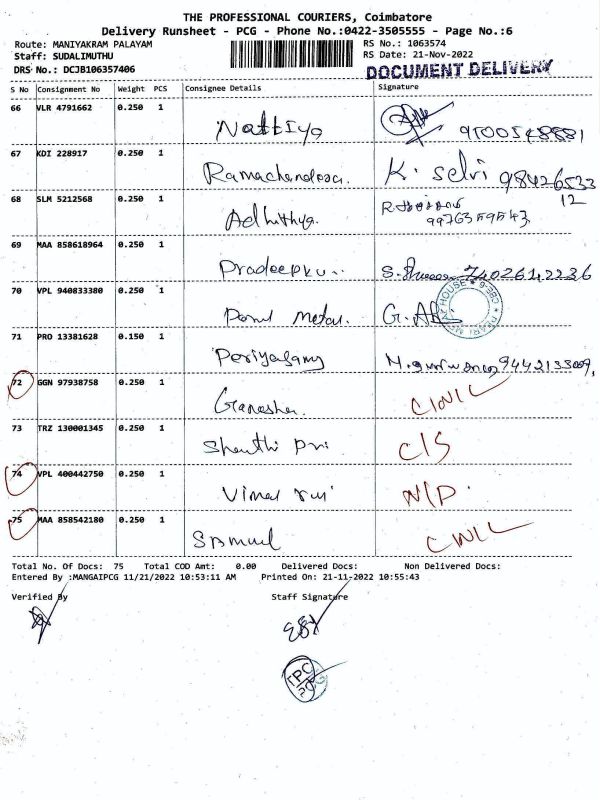 THE PROFESSIONAL COURIERS, Coimbatore
Delivery Runsheet - PCG - Phone No.:0422-3505555 - Page No.:6
Route: MANIYAKRAM PALAYAM RS No.: 1063574
Staff: SUDALIMUTHU RS Date: 21-Nov-2022
DRS No.: DCJB106357406 DOCUMENT DELIVERY
S No Consignment No Weight PCS Consignee Details Signature
66 VLR 4791662 0.250 1 Nattiya
67 KDI 228917 0.250 1 K. Selvi 9842653312
68 SLM 5212568 0.250 1 Adhithya. 9976359543
69 MAA 858618964 0.250 1 Pradeepku 7402642236
70 VPL 940833380 0.250 1
71 PRO 13381628 0.150 1 Periyasamy
72 GGN 97938758 0.250 1 Ganesha
73 TRZ 130001345 0.250 1 C/S
74 VPL 400442750 0.250 1 N/D.
75 MAA 858542180 0.250 1 Samuel
Total No. Of Docs: 75 Total COD Amt: 0.00 Delivered Docs: Non Delivered Docs:
Entered By :MANGAIPCG 11/21/2022 10:53:11 AM Printed On: 21-11-2022 10:55:43
Verified By Staff Signature